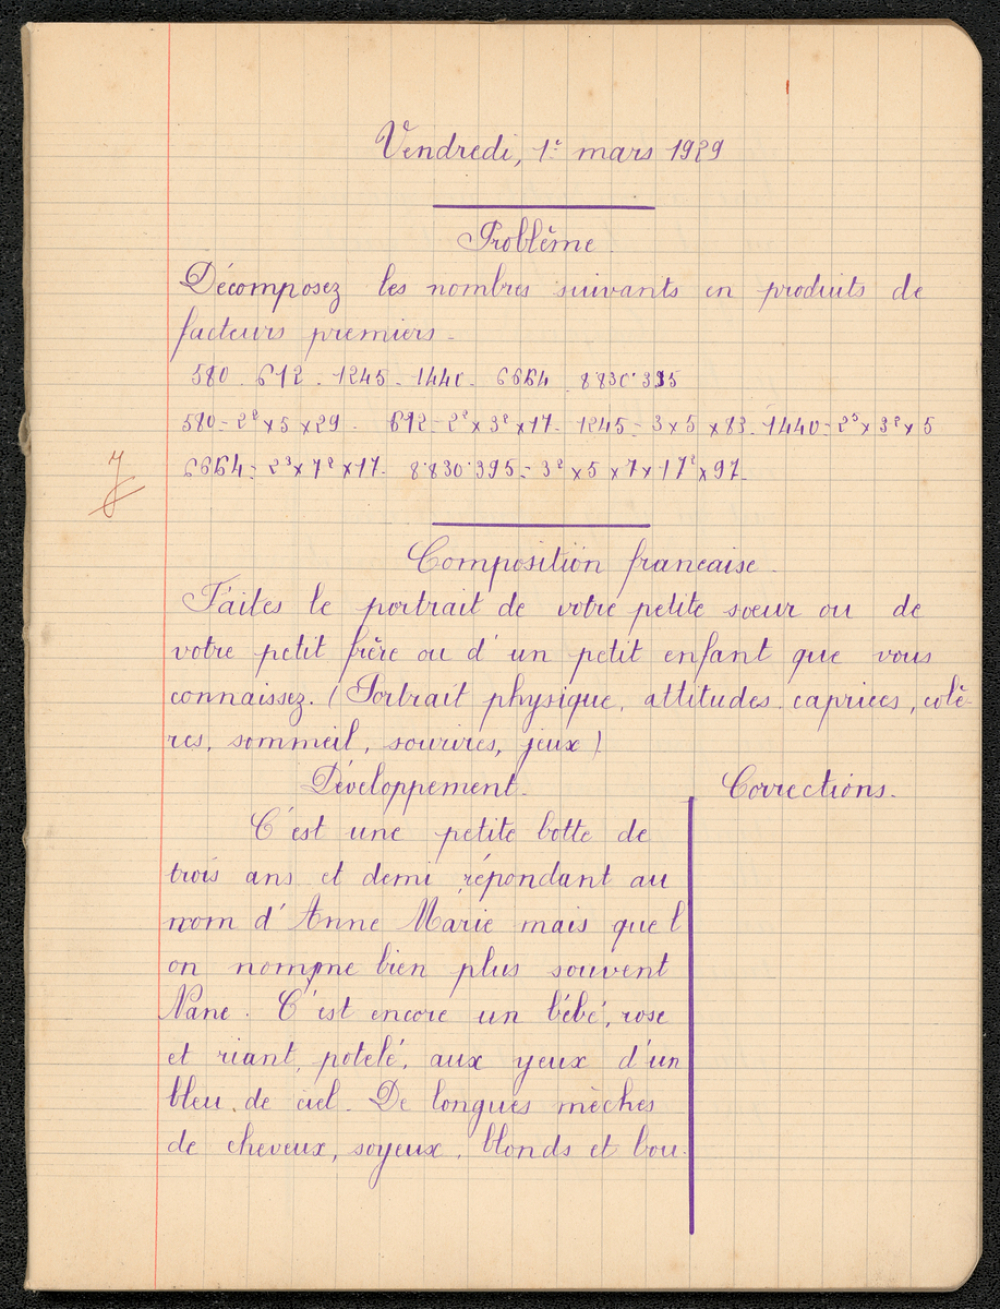 Vendredi, 1er mars 1929
Problème.
Décomposez les nombres suivants en produits de
facteurs premiers.
580. 612. 1245. 1440. 6664 8830395
580 = 2² x 5 x 29. 612 = 2² x 3² x 17. 1245 = 3 x 5 x 83. 1440 = 2⁵ x 3² x 5
6664 = 2³ x 7² x 17. 8.830.395 = 3² x 5 x 7 x 17² x 97.
Composition francaise.
Faites le portrait de votre petite sœur ou de
votre petit frère ou d'un petit enfant que vous
connaissez. (Portrait physique, attitudes, caprices, colè-
res, sommeil, sourires, jeux)
Développement. Corrections.
C'est une petite botte de
trois ans et demi répondant au
nom d'Anne Marie mais que l
on nomme bien plus souvent
Nane. C'est encore un bébé, rose
et riant, potelé, aux yeux d'un
bleu de ciel. De longues mèches
de cheveux, soyeux, blonds et bou-